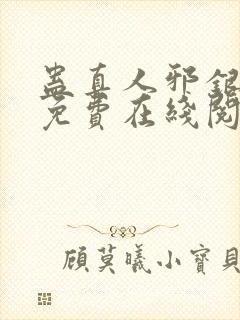 蛊真人邪银
免费在綫阅
顾莫曦小宝贝